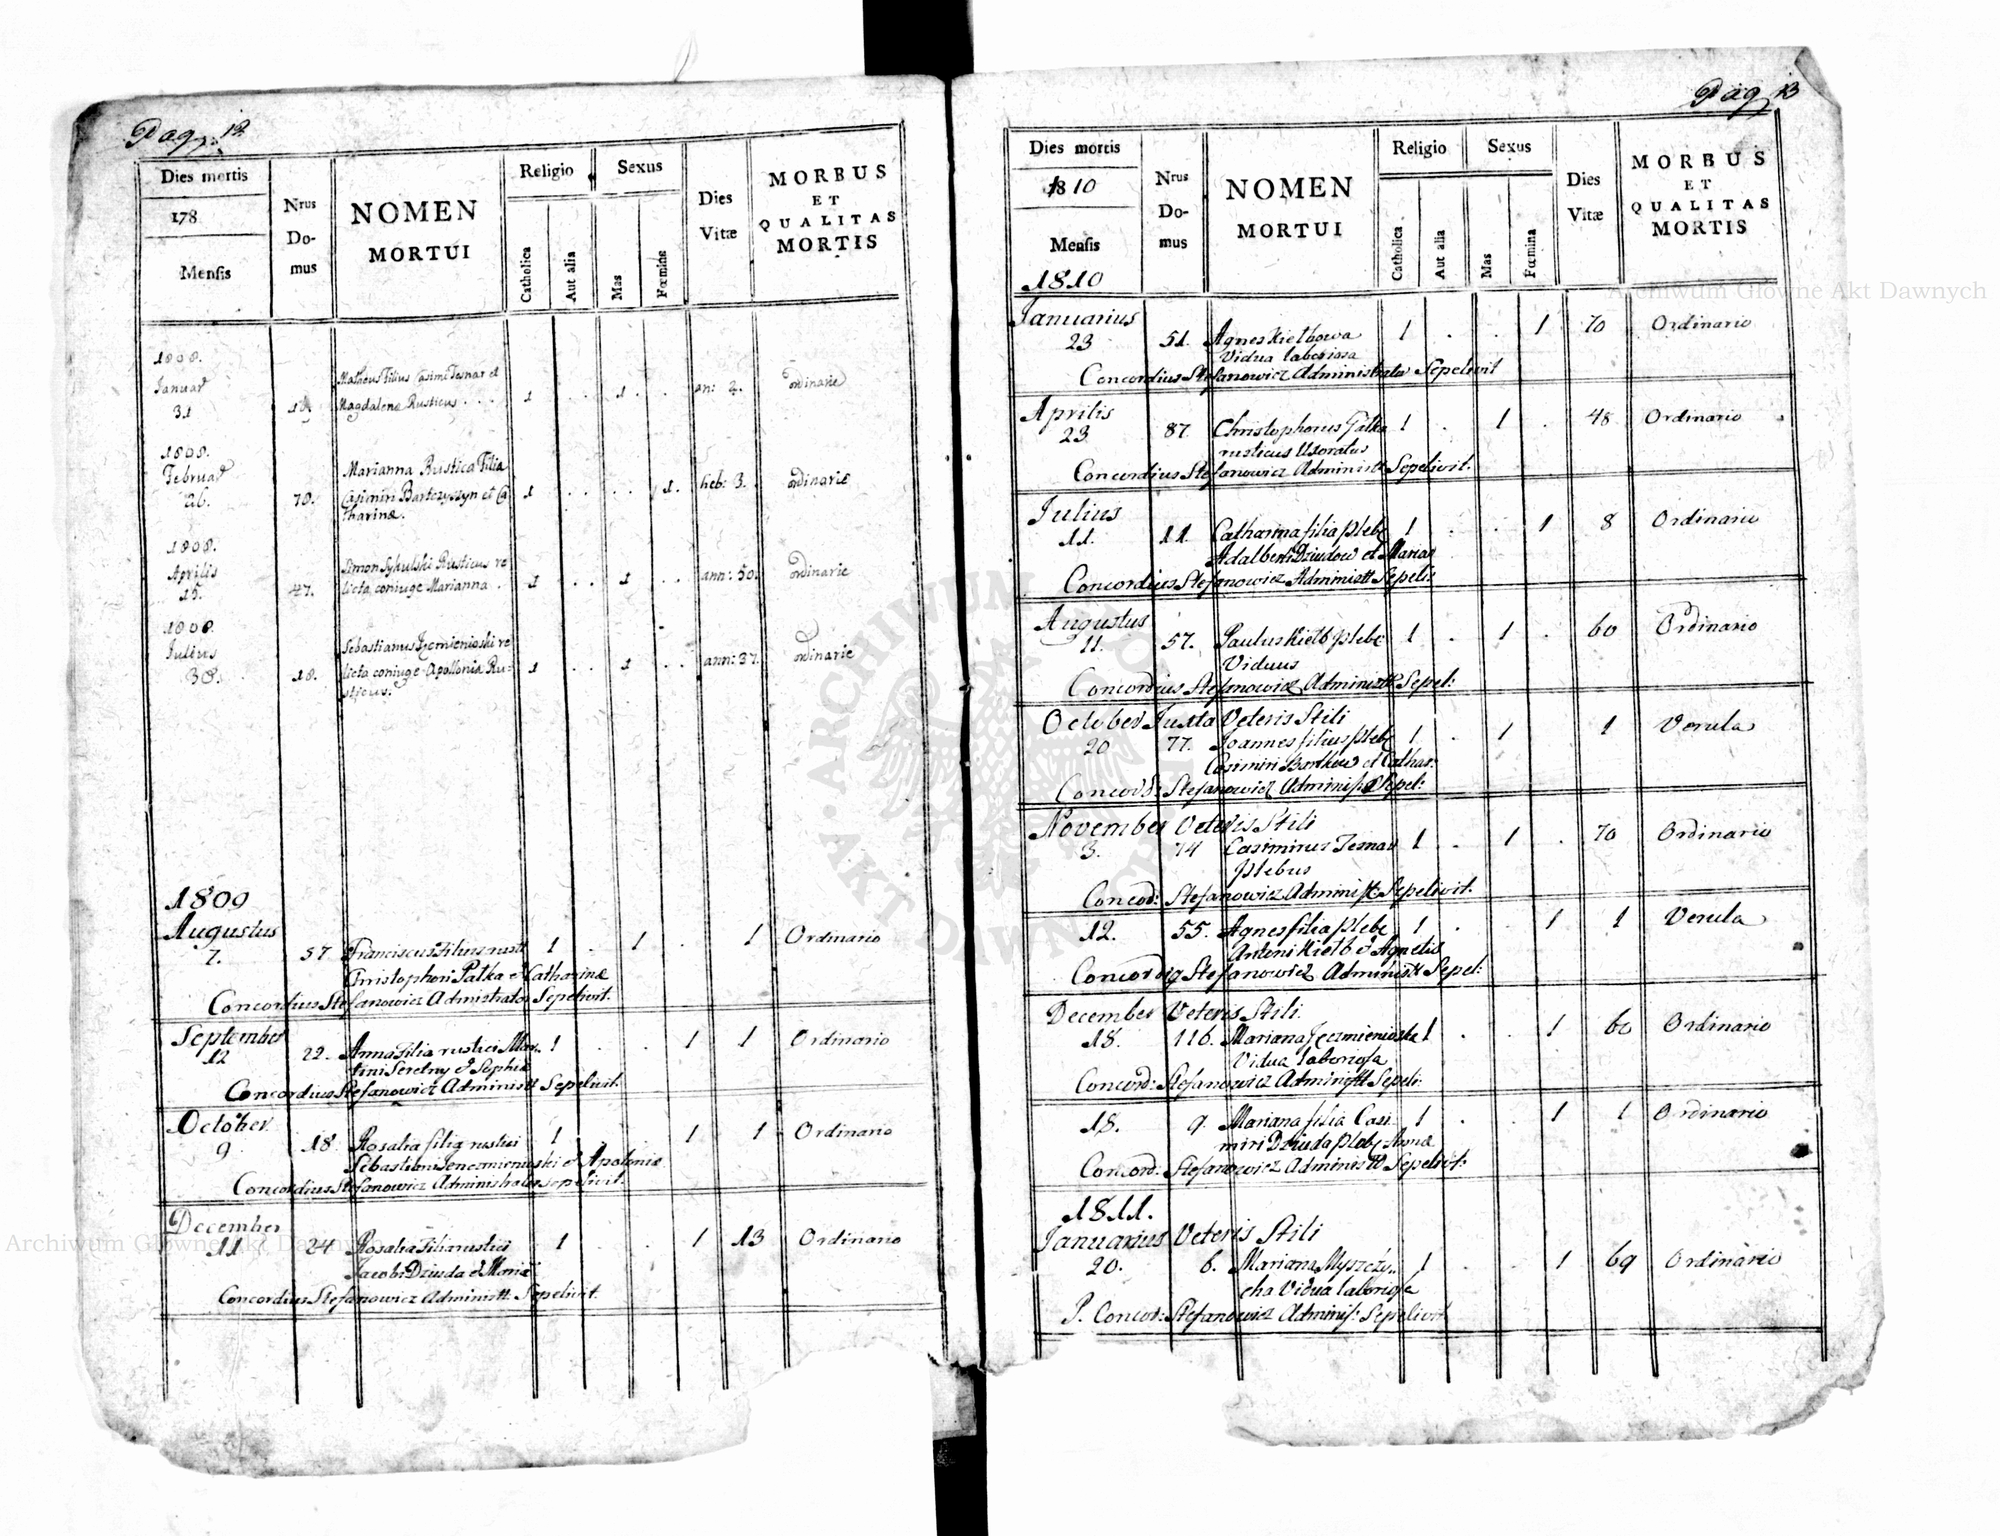 Pag: 12.
Dies mortis
178
Mensis
Nrus
Do-
mus
NOMEN
MORTUI
Religio
Catholica
Aut alia
Sexus
Mas
Fœmina
Dies
Vitæ
MORBUS
ET
QUALITAS
MORTIS
1808.
Januar
31
Matheus Filius Casimi Tesnar et
Magdalenæ Rusticus . . . . 1 . . 1 . . an: 2. ordinarie
1808.
Februar
26. 70.
Marianna Rustica Filia
Casimiri Bartczyszyn et Ca
tharinæ. 1 . . . . 1. heb: 3. ordinarie
1808.
Aprilis
15. 47.
Simon Sykulski Rusticus re
licta coniuge Marianna . 1 . . 1 . . ann: 50. ordinarie
1808.
Julius
30. 18.
Sebastianus Jęcmienioski re
licta coniuge Apollonia Ru-
sticus. 1 . . 1 . . ann: 37. ordinarie
1809
Augustus
7. 57 Franciscus Filius rusti 1 . 1 . 1 Ordinario
Christophori Pałka et Catharinæ
Concordius Stefanowicz Admistrator Sepelivit.
September
12 22. Anna Filia rustici Mar- 1 . . 1 1 Ordinario
tini Seretny et Sophiæ
Concordius Stefanowicz Administr Sepelivit.
October
9 18 Rosalia filia rustici 1 . . 1 1 Ordinario
Sebastiani Jenczmienioski et Apoloniæ
Concordius Stefanowicz Administrator sepelivit.
December
11 24 Rosalia Filia rustici 1 . . 1 13 Ordinario
Jacobi Dziuda et Mariæ
Concordius Stefanowicz Administr. Sepelivit.
Pag. 13
Dies mortis
1810
Mensis
1810
Nrus
Do-
mus
NOMEN
MORTUI
Religio
Catholica
Aut alia
Sexus
Mas
Fœmina
Dies
Vitæ
MORBUS
ET
QUALITAS
MORTIS
Januarius
23 51. Agnes Kiełbowa 1 . . 1 70 Ordinario
Vidua laboriosa
Concordius Stefanowicz Administrator Sepelivit
Aprilis
23 87 Christophorus Pałka 1 . 1 . 48 Ordinario
rusticus Uxoratus
Concordius Stefanowicz Administr Sepelivit.
Julius
11. 11. Catharina filia plebe 1 . . 1 8 Ordinario
Adalberti Dziudow et Marian
Concordius Stefanowicz Administr Sepeli:
Augustus
11. 57. Paulus Kiełb plebe 1 . 1 . 60 Ordinario
Viduus
Concordius Stefanowicz Administr Sepel:
October Juxta Veteris Stili
20 77. Joannes filius plebe 1 . 1 1 Verula
Casimiri Bartkow et Cathar:
Concord: Stefanowicz Administ Sepel:
November Veteris Stili
3. 74 Casimirus Tesnar 1 . 1 . 70 Ordinario
plebus
Concor: Stefanowicz Administ: Sepelivit.
12. 55. Agnes filia plebe 1 . . 1 1 Verula
Antoni Kiełb et Agnetis
Concordig Stefanowicz Administr Sepel:
December Veteris Stili.
18. 116. Mariana Jęczmienioska 1 . . 1 60 Ordinario
Vidua laboriosa
Concord: Stefanowicz Administr Sepeli:
18. 9 Mariana filia Casi 1 . . 1 1 Ordinario
miri Dziuda plebe Annæ
Concord: Stefanowicz Administr Sepelivit:
1811.
Januarius Veteris Stili
20. 6. Mariana Myszczy- 1 . . 1 69 Ordinario
cha Vidua laboriosa
P. Concor: Stefanowicz Adminis: Sepelivit
Archiwum Główne Akt Dawnych
Archiwum Główne Akt Dawnych
ARCHIWUM GŁÓWNE AKT DAWNYCH